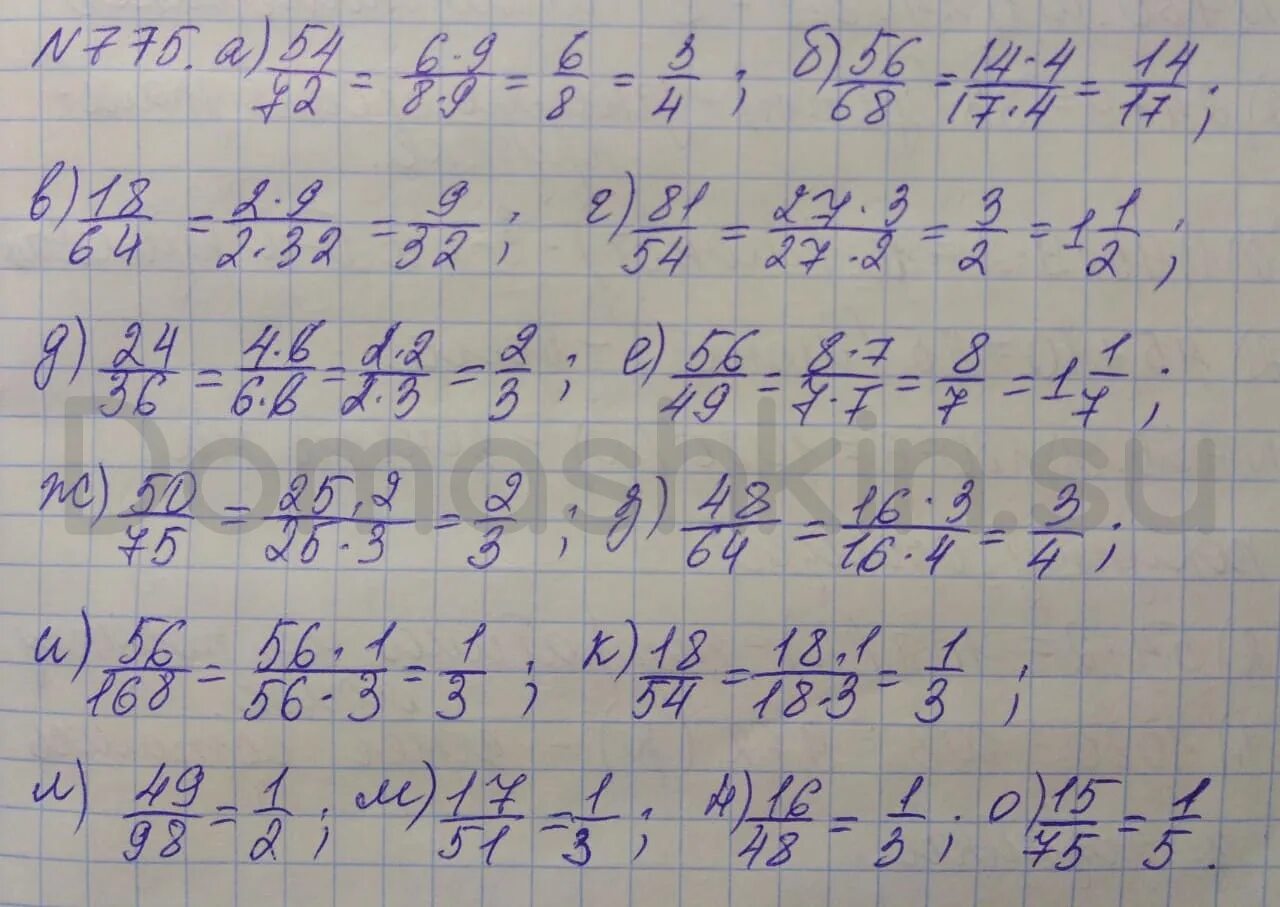 N775. а) 54/72 = 6·9/8·9 = 6/8 = 3/4 ; б) 56/68 = 14·4/17·4 = 14/17 ;
в) 18/64 = 2·9/2·32 = 9/32 ; г) 81/54 = 27·3/27·2 = 3/2 = 1 1/2 ;
д) 24/36 = 4·6/6·6 = 2·2/2·3 = 2/3 ; е) 56/49 = 8·7/7·7 = 8/7 = 1 1/7 ;
Domashkin.su
ж) 50/75 = 25·2/25·3 = 2/3 ; з) 48/64 = 16·3/16·4 = 3/4 ;
и) 56/168 = 56·1/56·3 = 1/3 ; к) 18/54 = 18·1/18·3 = 1/3 ;
л) 49/98 = 1/2 ; м) 17/51 = 1/3 ; н) 16/48 = 1/3 ; о) 15/75 = 1/5 .